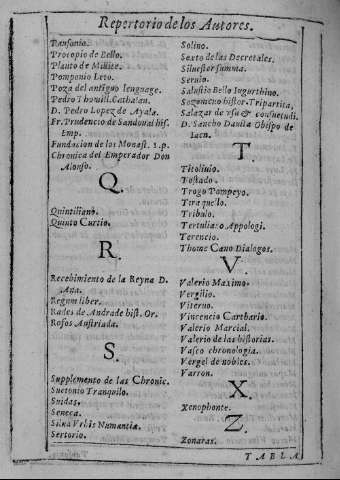 Repertorio de los Autores.
Pausanio.
Procopio de Bello.
Plauto de Milite.
Pomponio Leto.
Poza del antiguo lenguage.
Pedro Thomill. Cathalan.
D. Pedro Lopez de Ayala.
Fr. Prudencio de Sandoual hist.
Emp.
Fundacion de los Monast. 1. p.
Chronica del Emperador Don
Alonso.
Q.
Quintiliano.
Quinto Curtio.
R.
Recebimiento de la Reyna D.
Ana.
Regum liber.
Rades de Andrade hist. Or.
Rosos Austriada.
S.
Supplemento de las Chronic.
Suetonio Tranquilo.
Suidas.
Seneca.
Silua Vrbis Numantiæ.
Sertorio.
Solino.
Sexto de las Decretales.
Siluester summa.
Seruio.
Salustio Bello Iugurthino.
Sozomeno histor. Tripartita,
Salazar de vsu & consuetudi.
D. Sancho Dauila Obispo de
Iaen.
T.
Titoliuio.
Tostado.
Trogo Pompeyo.
Tiraquello.
Tribulo.
Tertuliano Appologi.
Terencio.
Thome Cano Dialogos.
V.
Valerio Maximo.
Vergilio.
Viterno.
Vincencio Carthario.
Valerio Marcial.
Valerio de las historias.
Vasco chronologia.
Vergel de nobles.
Varron.
X.
Xenophonte.
Z.
Zonaras.
TABLA